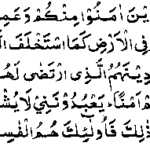 يْنَ اٰمَنُوْا مِنْكُمْ وَعَمِ
فِي الْاَرْضِ كَمَا اسْتَخْلَفَ ال
دِيْنَهُمُ الَّذِي ارْتَضٰى لَهُ
اَمْنًا ؕ يَعْبُدُوْنَنِيْ لَا يُشْ
ذٰلِكَ فَاُولٰٓئِكَ هُمُ الْفٰسِ